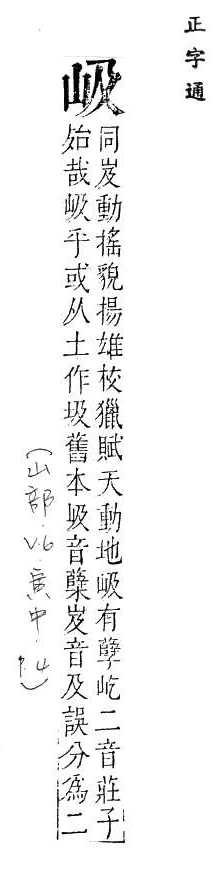 正字通
岋
同岌動搖貌揚雄校獵賦天動地岋有孽屹二音莊子
始哉岋乎或从土作圾舊本岋音櫱岌音及誤分爲二
(山部.V.6.寅中.P.4)